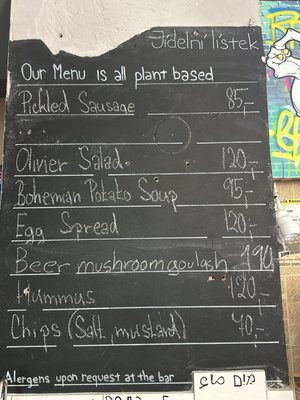 Jídelní lístek
Our Menu is all plant based
Pickled Sausage 85,-
Olivier Salad. 120,-
Bohemian Potato Soup 95,-
Egg Spread 120,-
Beer mushroom goulash 190
Hummus 120,-
Chips (Salt, mustard) 70,-
Alergens upon request at the bar